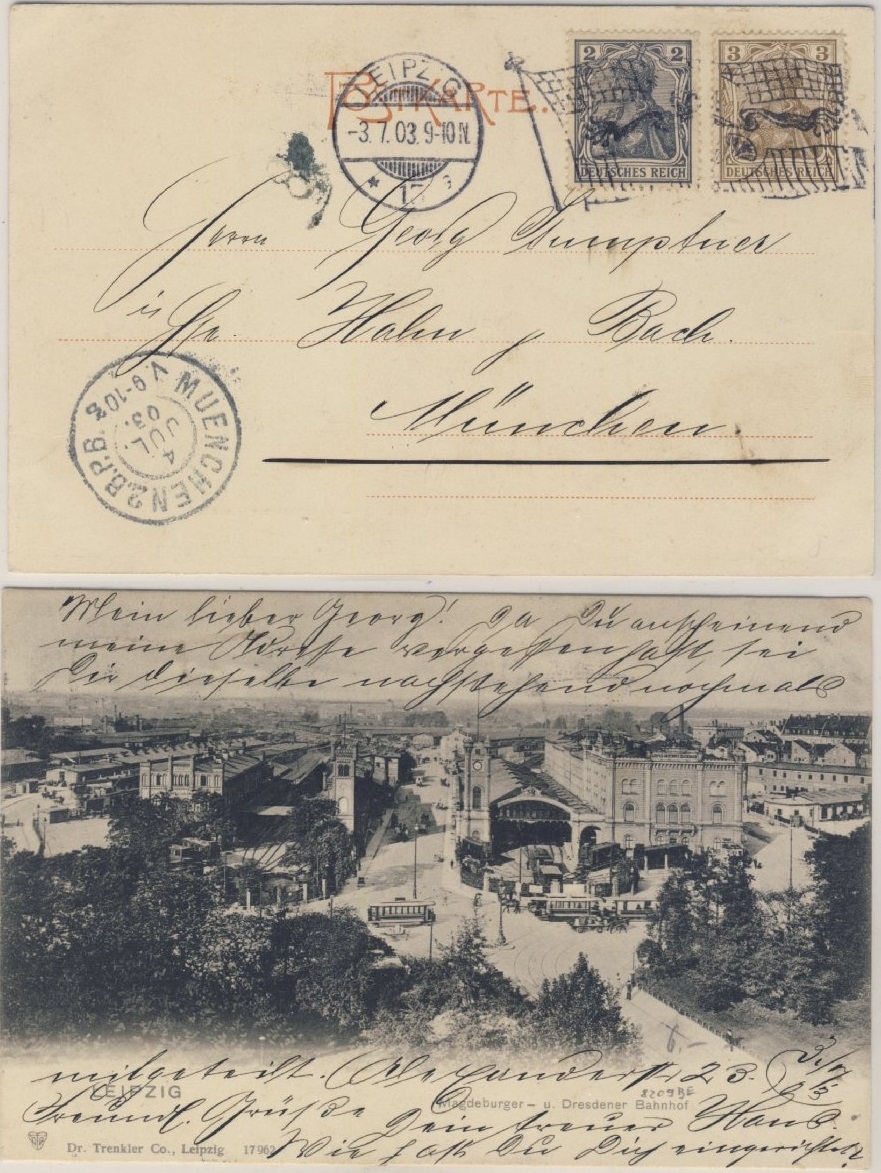 POSTKARTE.
LEIPZIG
-3.7.03.9-10N.
2 2
DEUTSCHES REICH
3 3
DEUTSCHES REICH
Herrn Georg Sumptner
Hahn & Bach.
München.
MUENCHEN 2.B.P.B.
V.9-10
4
JUL.
03.
Mein lieber Georg! Da Du anscheinend
meine Adresse vergessen hast sei
Dir dieselbe nachstehend nochmals
mitgeteilt. Alexanderstr 23.
LEIPZIG
Magdeburger- u. Dresdener Bahnhof
8209BE
6.-
Freundl. Grüße Dein treuer Hans.
Dr. Trenkler Co., Leipzig 17962
Wie hast Du Dich eingerichtet?